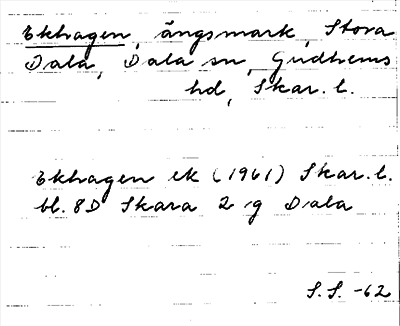 Ekhagen, ängsmark, Stora
Dala, Dala sn, Gudhems
hd, Skar. l.
Ekhagen ek (1961) Skar. l.
bl. 8D Skara 2 g Dala
S.S. -62